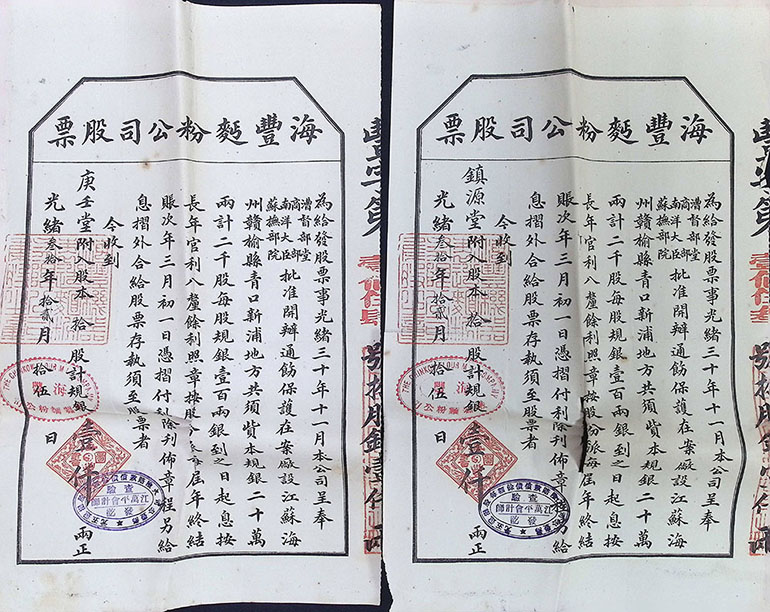 海豐麪粉公司股票
為給發股票事光緒三十年十一月本公司呈奉
漕督部堂
商部
南洋大臣
蘇撫部院
批准開辦通飭保護在案廠設江蘇海
州贛榆縣青口新浦地方共須貲本規銀二十萬
兩計二千股每股規銀壹百兩銀到之日起息按
長年官利八釐餘利照章按股分派每屆年終結
賬次年三月初一日憑摺付利除刋佈章程另給
息摺外合給股票存執須至股票者
今收到
庚壬堂附入股本拾股計規銀壹仟兩正
光緒叁拾年拾貳月拾伍日
查驗
江萬平會計師
登記
海豐麪粉公司股票
為給發股票事光緒三十年十一月本公司呈奉
漕督部堂
商部
南洋大臣
蘇撫部院
批准開辦通飭保護在案廠設江蘇海
州贛榆縣青口新浦地方共須貲本規銀二十萬
兩計二千股每股規銀壹百兩銀到之日起息按
長年官利八釐餘利照章按股分派每屆年終結
賬次年三月初一日憑摺付利除刋佈章程另給
息摺外合給股票存執須至股票者
今收到
鎮源堂附入股本拾股計規銀壹仟兩正
光緒叁拾年拾貳月拾伍日
查驗
江萬平會計師
登記